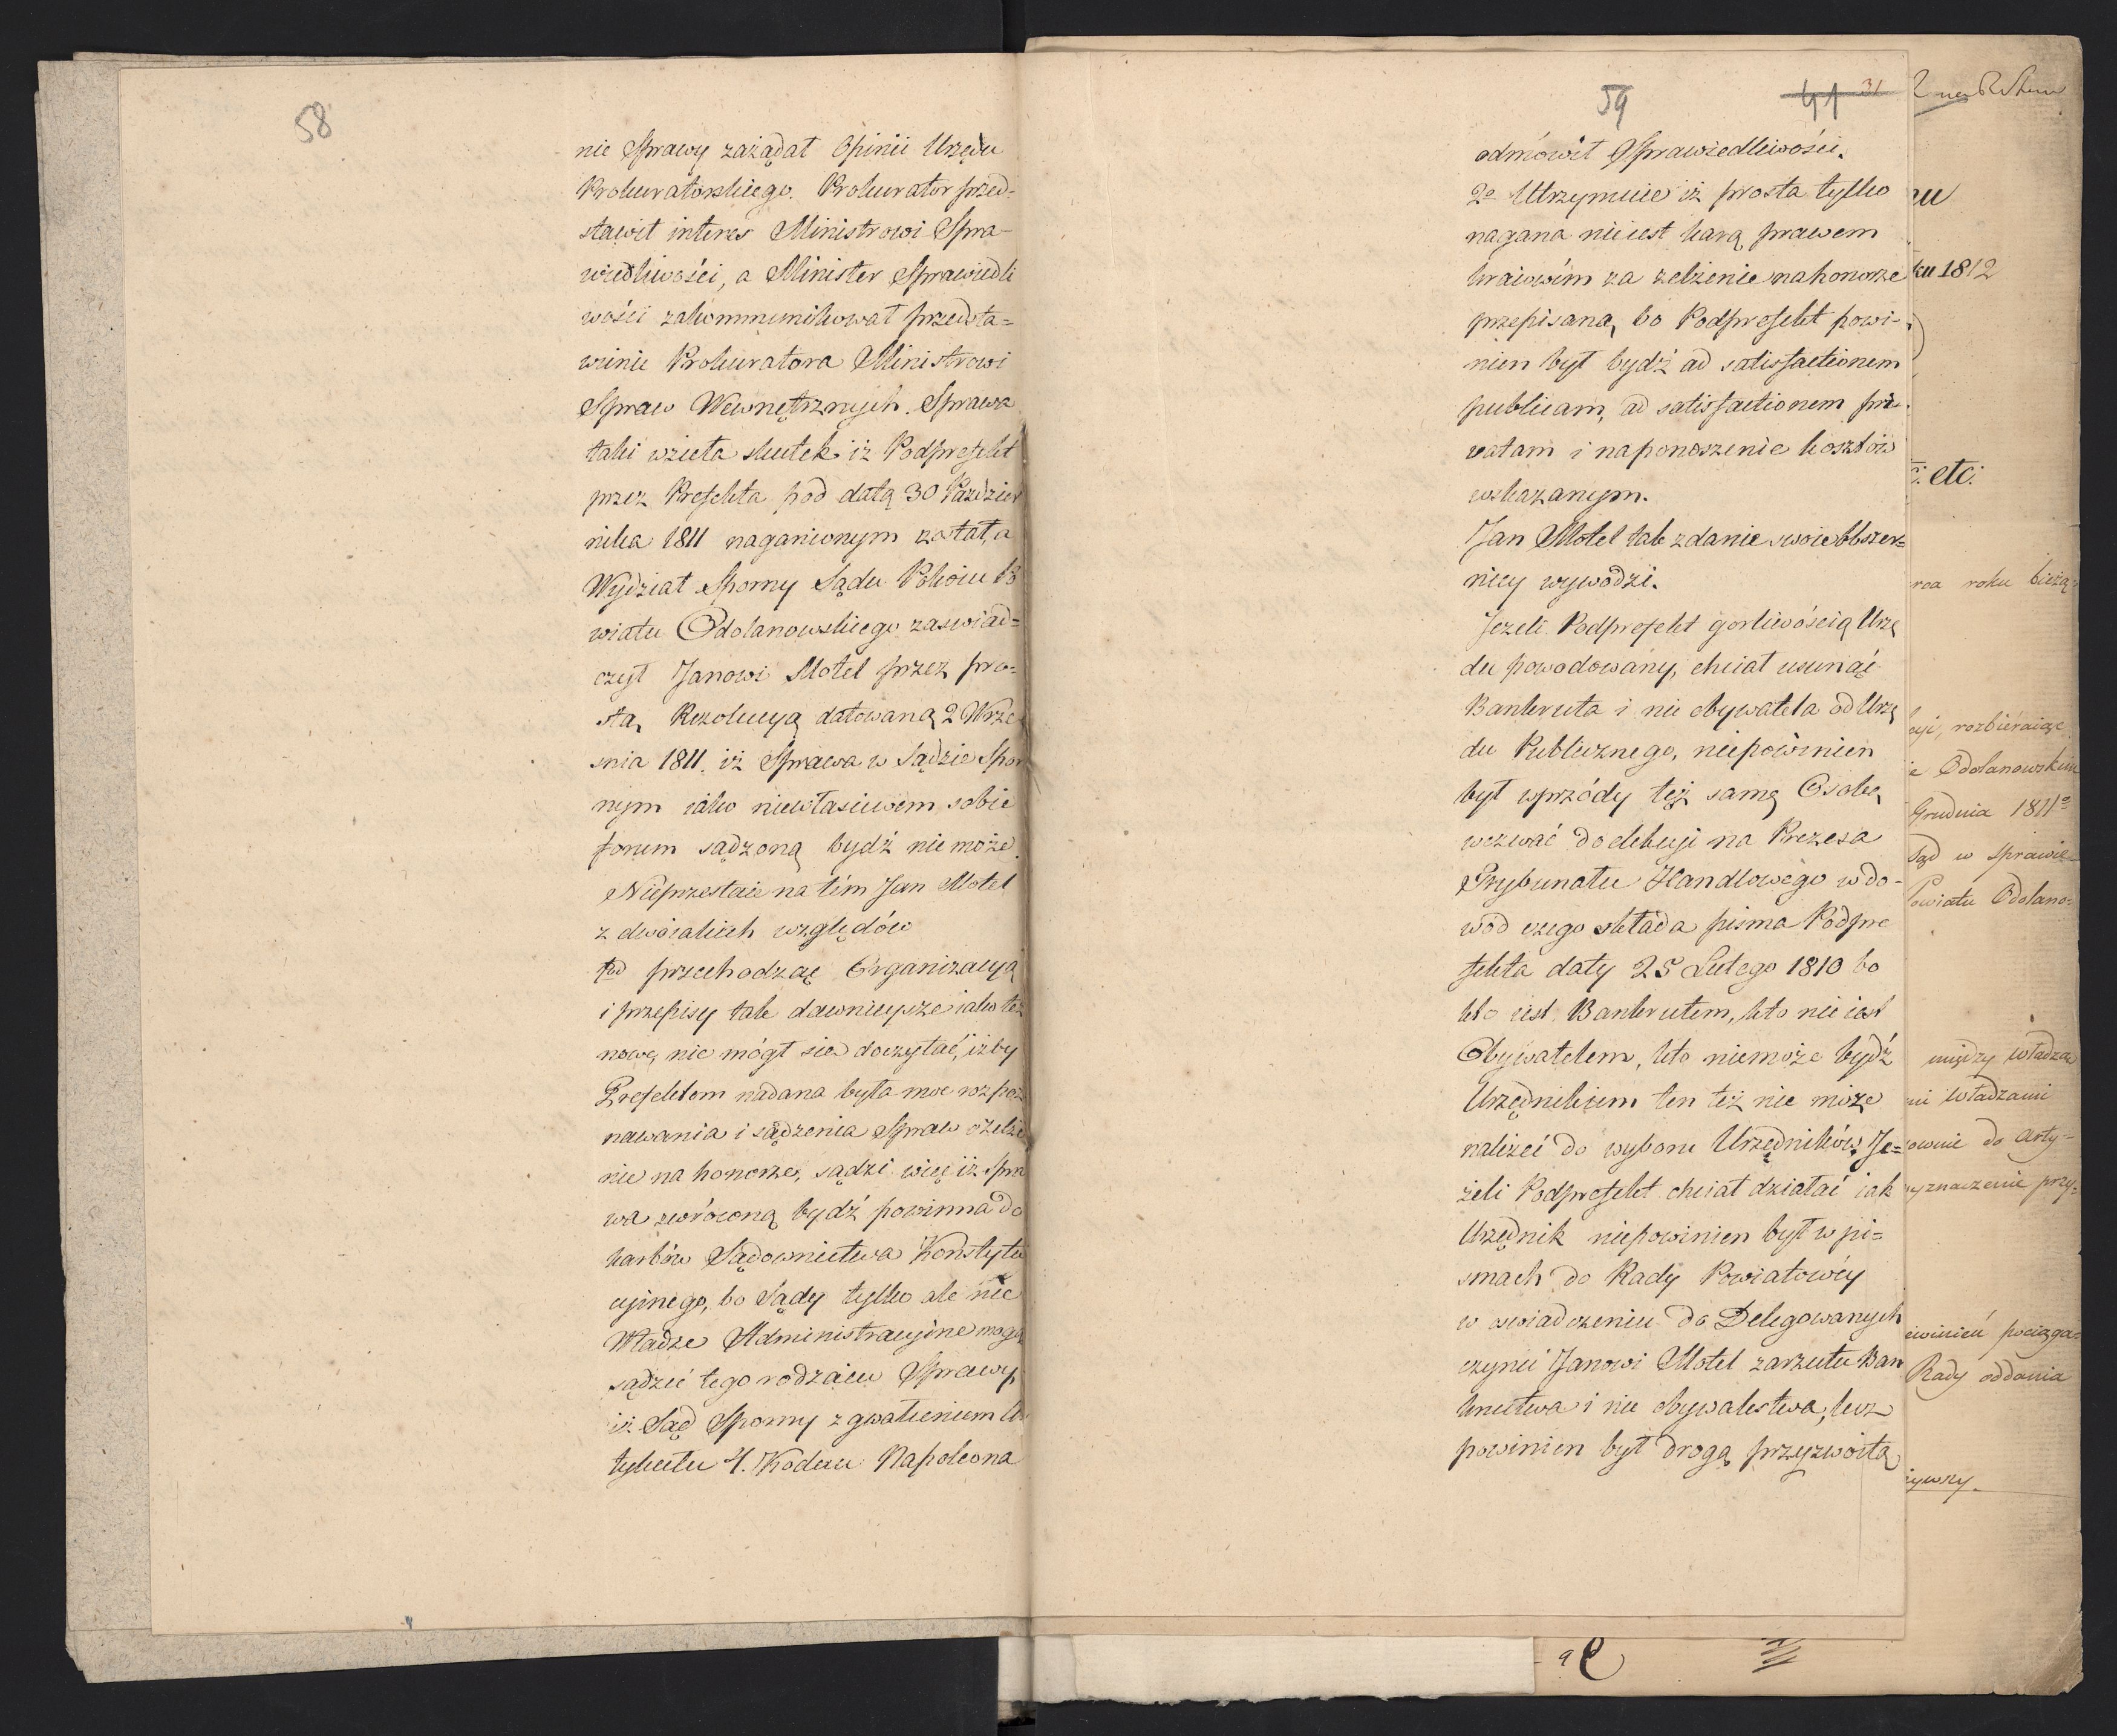 58
nie Sprawy zażądał Opinii Urzędu
Prokuratorskiego. Prokurator przed-
stawił interes Ministrowi Spra-
wiedliwości, a Minister Sprawiedli
wości zakommunikował przedsta=
wienie Prokuratora Ministrowi
Spraw Wewnętrznych. Sprawa
taki wzieła skutek iż Podprefekt
przez Prefekta pod datą 30 Paździer
nika 1811 naganionym został, a
Wydział Sporny Sądu Pokoiu Po
wiatu Odolanowskiego zaswiad=
czył Janowi Motel przez pro=
stą Rezolucyą datowaną 2 Wrze
snia 1811. iż Sprawa w Sądzie Spor
nym iako niewłasciwem sobie
forum sądzoną bydź nie może.
Nieprzestaie na tím Jan Motel
z dwoiakich względów
1mo przechodząc Organizacyą
i przepisy tak dawnieysze iako też
nowe, nie mógł sie doczytać, iżby
Prefektom nadana była moc rozpoz
nawania i sądzenia Spraw o zelże
nie na honorze, sądzi więc iż spra
wa zwróconą bydź powinna do
karbów Sądownictwa Konstytu
cyinego, bo Sądy tylko ale nie
Władze Administracyine mogą
sądzić tego rodzaiu Sprawy,
iż Sąd Sporny z gwałceniem Ar
tykułu 4. Kodexu Napoleona
59 41 31
odmówił Sprawiedliwości.
2o Utrzymuie iż prosta tylko
nagana nie iest karą prawem
kraiowím za zelżenie na honorze
przepisaną, bo Podprefekt powi-
nien był bydź ad satisfactionem
publicam, ad satisfactionem pri-
vatam i na ponoszenie kosztów
wskazanym.
Jan Motel tak zdanie swoie obszer=
niey wywodzi.
Jeżeli Podprefekt gorliwością Urzę
du powodowany, chciał usunąć
Bankruta i nie obywatela od Urzę
du Publicznego, niepowinien
był wprzódy też samą Osobę
wezwać do elekcyi na Prezesa
Trybunału Handlowego w do-
wód czego składa pisma Podpre
fekta daty 25 Lutego 1810 bo
kto iest Bankrutem, kto nie iest
Obywatelem, kto niemoże bydź
Urzędnikiem ten też nie może
należeć do wyboru Urzędników. Je=
żeli Podprefekt chciał działać iak
Urzędnik niepowinien był w pi=
smach do Rady Powiatowéy
w oswiadczeniu do Delegowanych
czynić Janowi Motel zarzutu Ban
kructwa i nie obywatelstwa, lecz
powinien był drogą przyzwoitą
ku 1812
etc:
roku bieżą=
rozbieraiąc
Odolanowskim
Grudnia 1811o
Sąd w sprawie
Powiatu Odolano=
między władzą
władzami
do Arty=
przy=
pociąga=
Rady oddania